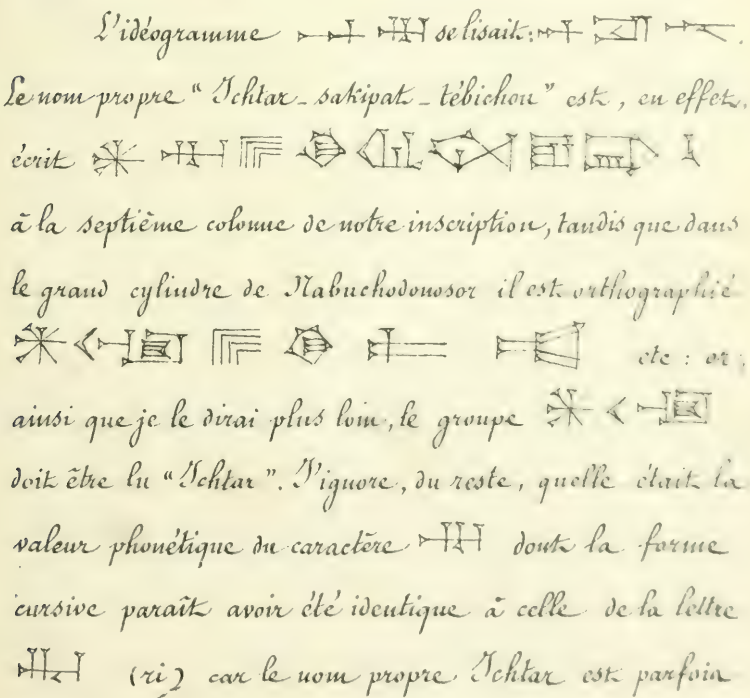 L'idéogramme se lisait: .
Le nom propre "Ichtar-sakipat-tébichou" est, en effet,
écrit
à la septième colonne de notre inscription, tandis que dans
le grand cylindre de Nabuchodonosor il est orthographié
etc: or,
ainsi que je le dirai plus loin, le groupe
doit être lu "Ichtar". J'ignore, du reste, quelle était la
valeur phonétique du caractère dont la forme
cursive paraît avoir été identique à celle de la lettre
(ri) car le nom propre Ichtar est parfois